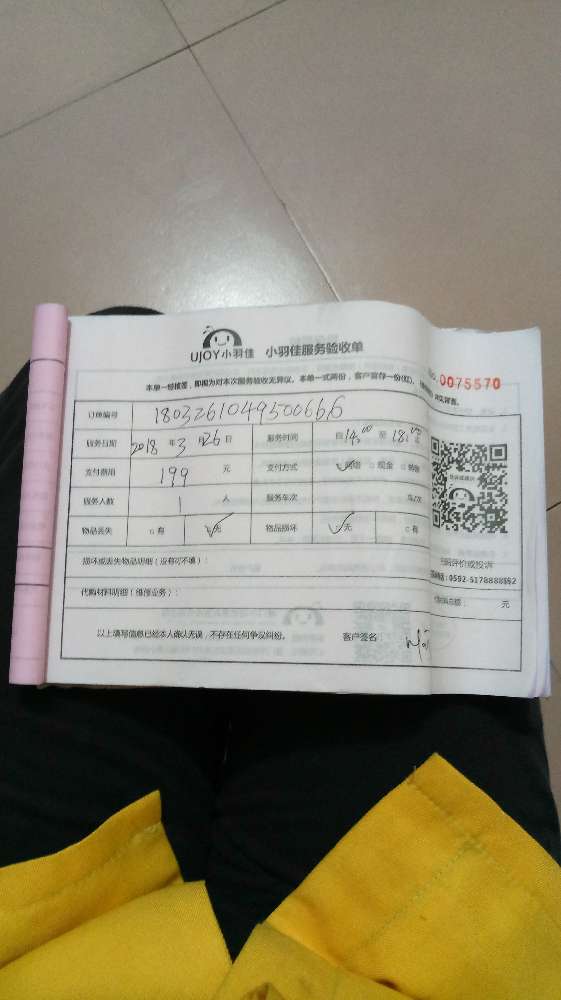 UJOY小羽佳 小羽佳服务验收单
本单一经核签,即视为对本次服务验收无异议。本单一式两份,客户留存一份(红)
0075570
订单编号 1803261049500666
服务日期 2018 年 3 月 26 日 服务时间 自 14:00 至 18:00
支付费用 199 元 支付方式 网络 现金
服务人数 1 人 服务车次 车/次
物品丢失 有 无 物品损坏 无 有
损坏或丢失物品明细(没有可不填):
扫码评价或投诉
0592-5178888转2
代购材料明细(维修业务): 元
以上填写信息已经本人确认无误,不存在任何争议纠纷。 客户签名